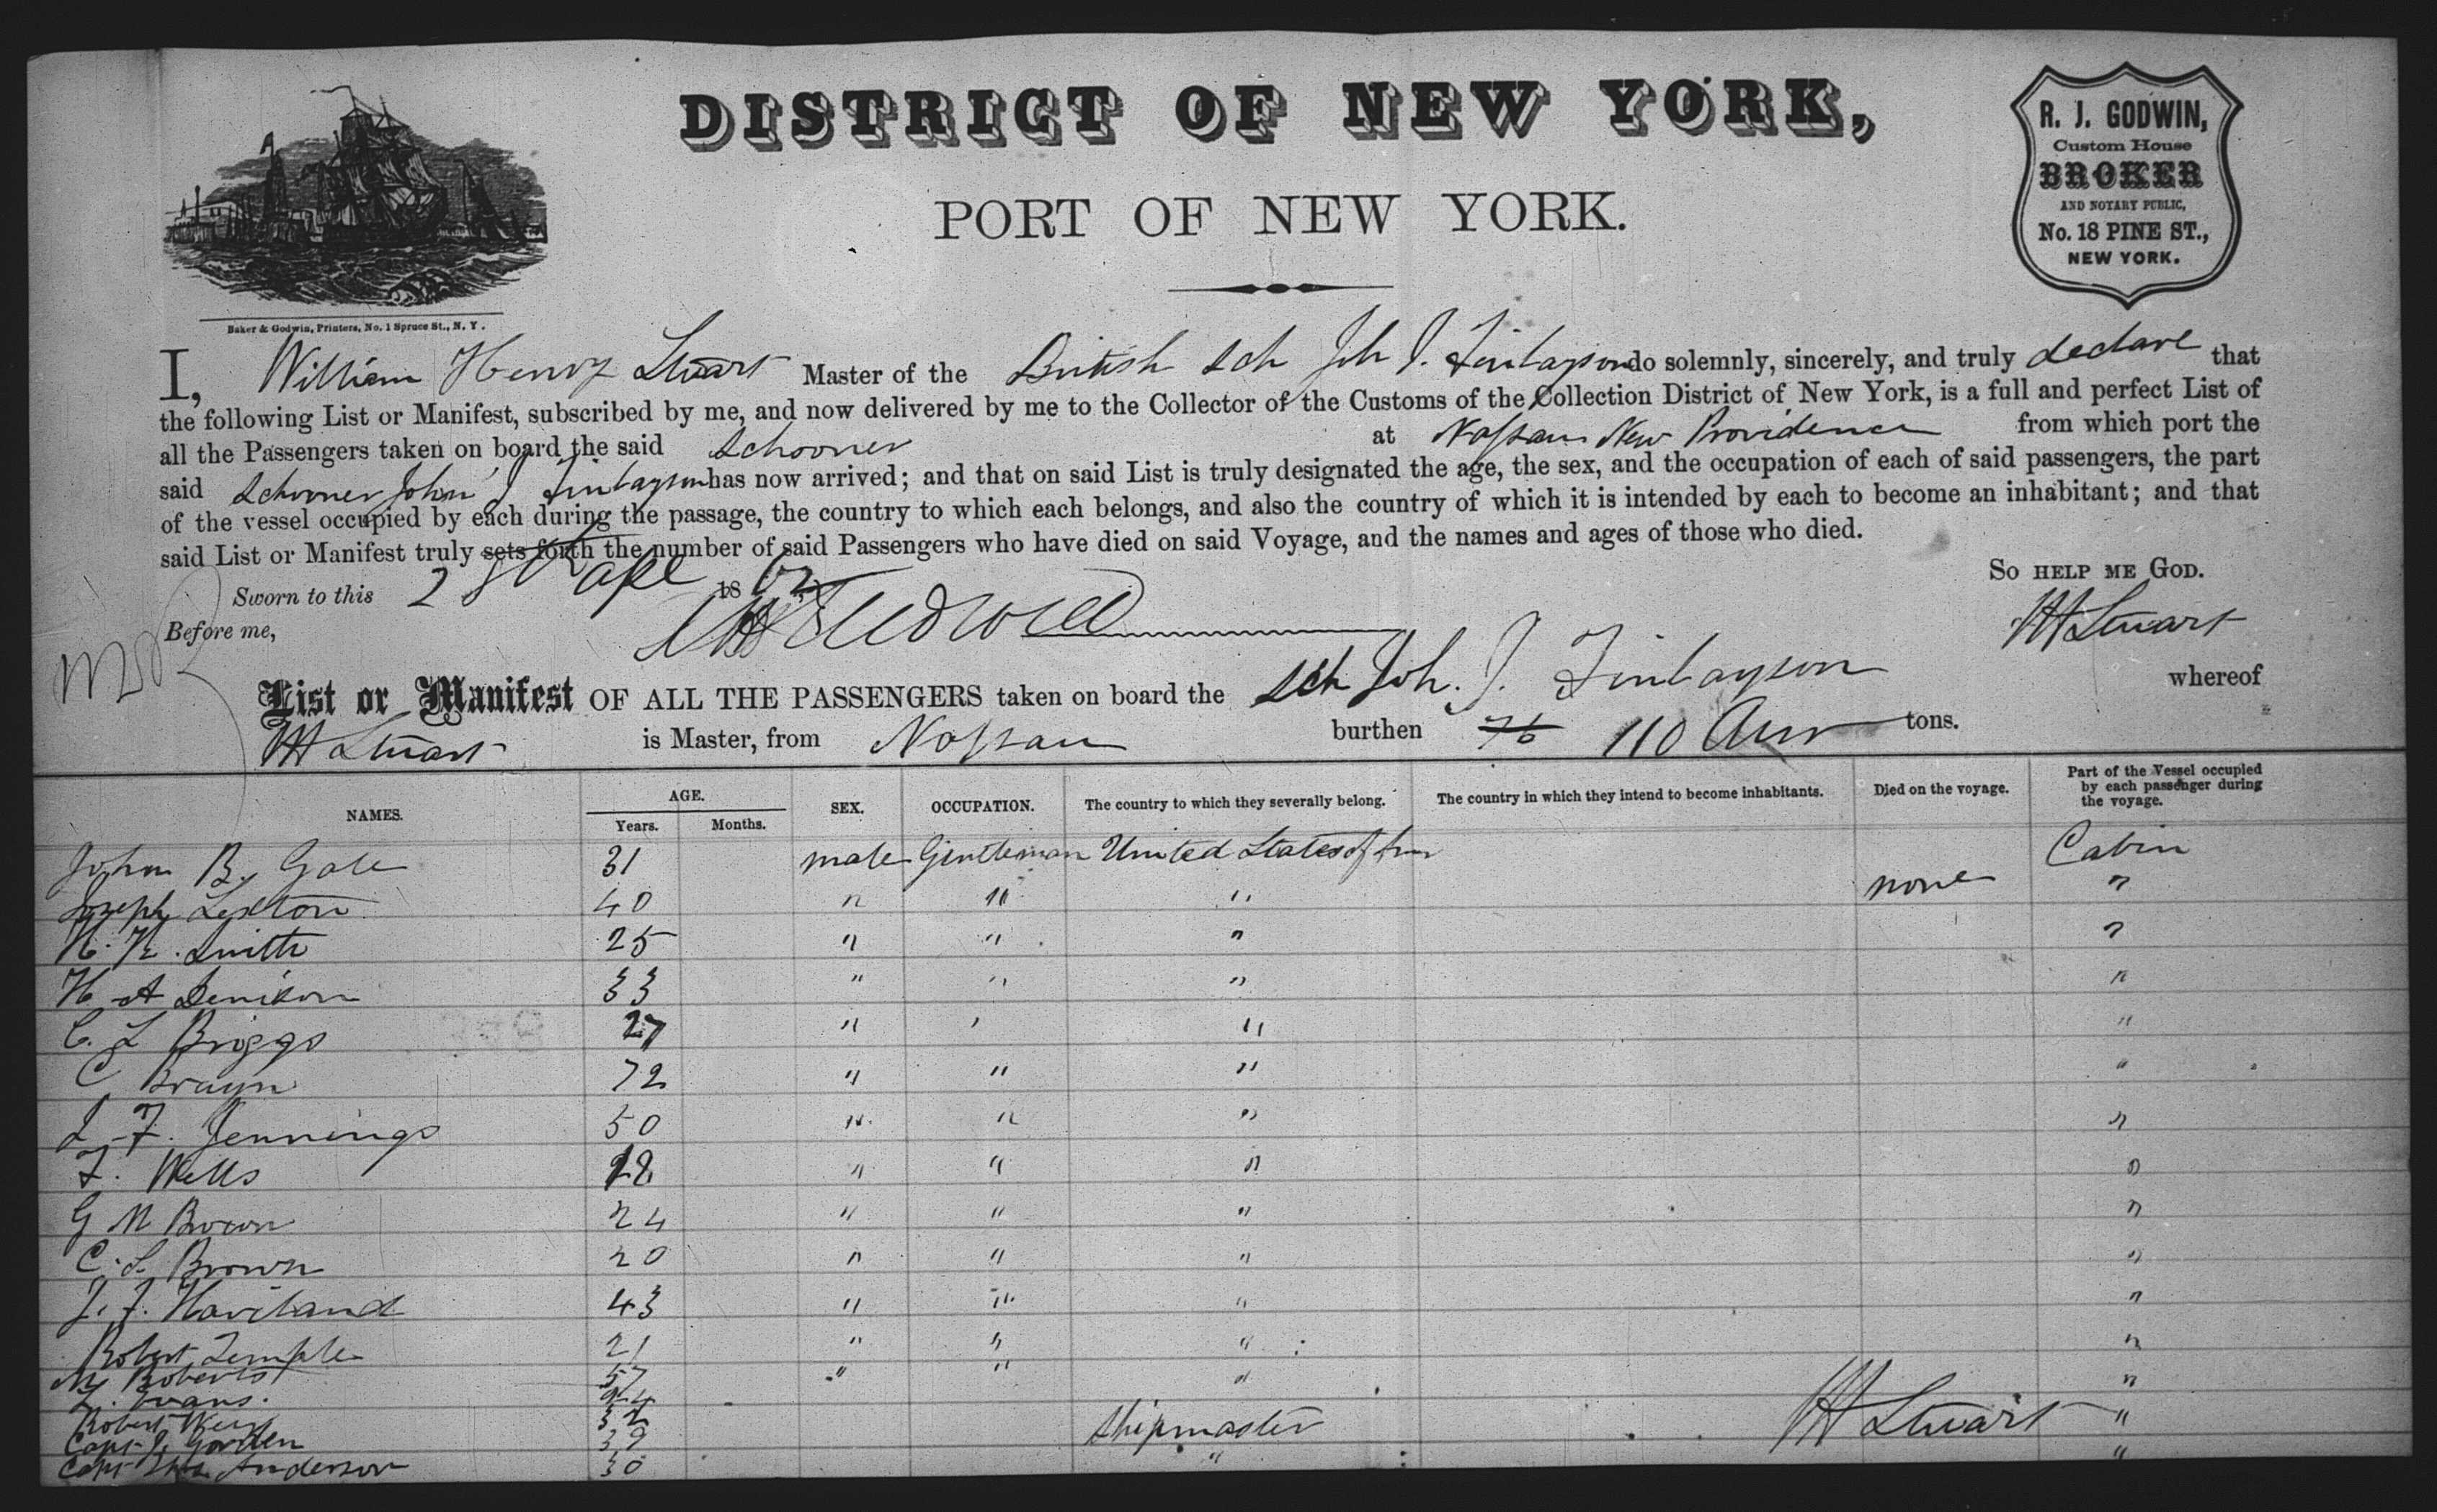 DISTRICT OF NEW YORK,
PORT OF NEW YORK.
R. J. GODWIN,
Custom House
BROKER
AND NOTARY PUBLIC,
No. 18 PINE ST.,
NEW YORK.
Baker & Godwin, Printers, No. 1 Spruce St., N. Y.
I, William Henry Stuart Master of the British Sch Joh J. Finlayson do solemnly, sincerely, and truly declare that
the following List or Manifest, subscribed by me, and now delivered by me to the Collector of the Customs of the Collection District of New York, is a full and perfect List of
all the Passengers taken on board the said Schooner at Nassau New Providence from which port the
said Schooner John J Finlayson has now arrived; and that on said List is truly designated the age, the sex, and the occupation of each of said passengers, the part
of the vessel occupied by each during the passage, the country to which each belongs, and also the country of which it is intended by each to become an inhabitant; and that
said List or Manifest truly sets forth the number of said Passengers who have died on said Voyage, and the names and ages of those who died.
So help me God.
Sworn to this 28th Apl 1862
WH Stuart
Before me,
List or Manifest OF ALL THE PASSENGERS taken on board the Sch Joh. J. Finlayson whereof
WH Stuart is Master, from Nassau burthen 76 110 tons.
NAMES. AGE. Years. Months. SEX. OCCUPATION. The country to which they severally belong. The country in which they intend to become inhabitants. Died on the voyage. Part of the Vessel occupied by each passenger during the voyage.
John B. Gale 31 male Gentleman United States of Am Cabin
Joseph Lexton 40 " " " none "
H. K. Smith 25 " " " "
H A Denison 33 " " " "
C. L Briggs 27 " ' " "
C Brayn 72 " " " "
L F. Jennings 50 " " " "
F. Wells 28 " " " "
G M Brown 24 " " " "
C. L Brown 20 " " " "
J. J. Haviland 43 " " " "
Robert Temple 21 " " " "
M Roberts 57 " " " "
L. Evans. 24
Robert Weir 32 Shipmaster WH Stuart "
Capt J. Gorden 39
Capt Anderson 30 " "